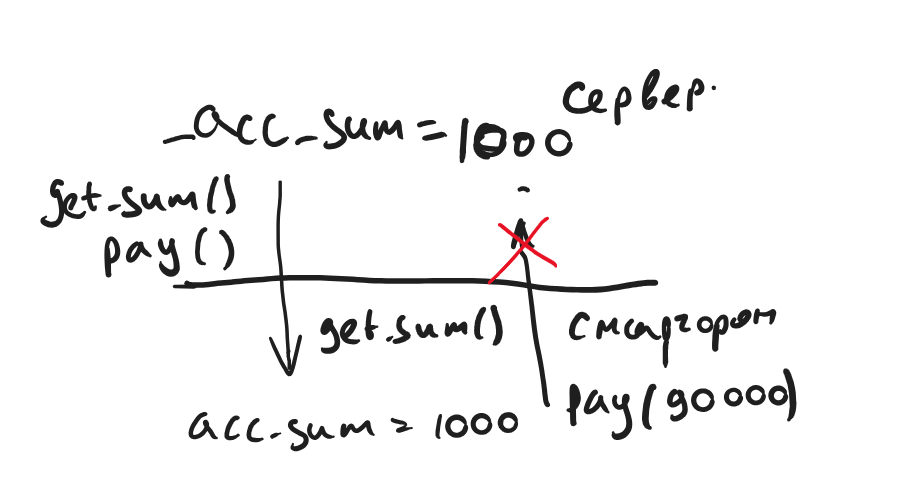 сервер.
_acc_sum = 1000
get_sum()
pay()
get.sum()
смартфорон
pay(90000)
acc_sum = 1000